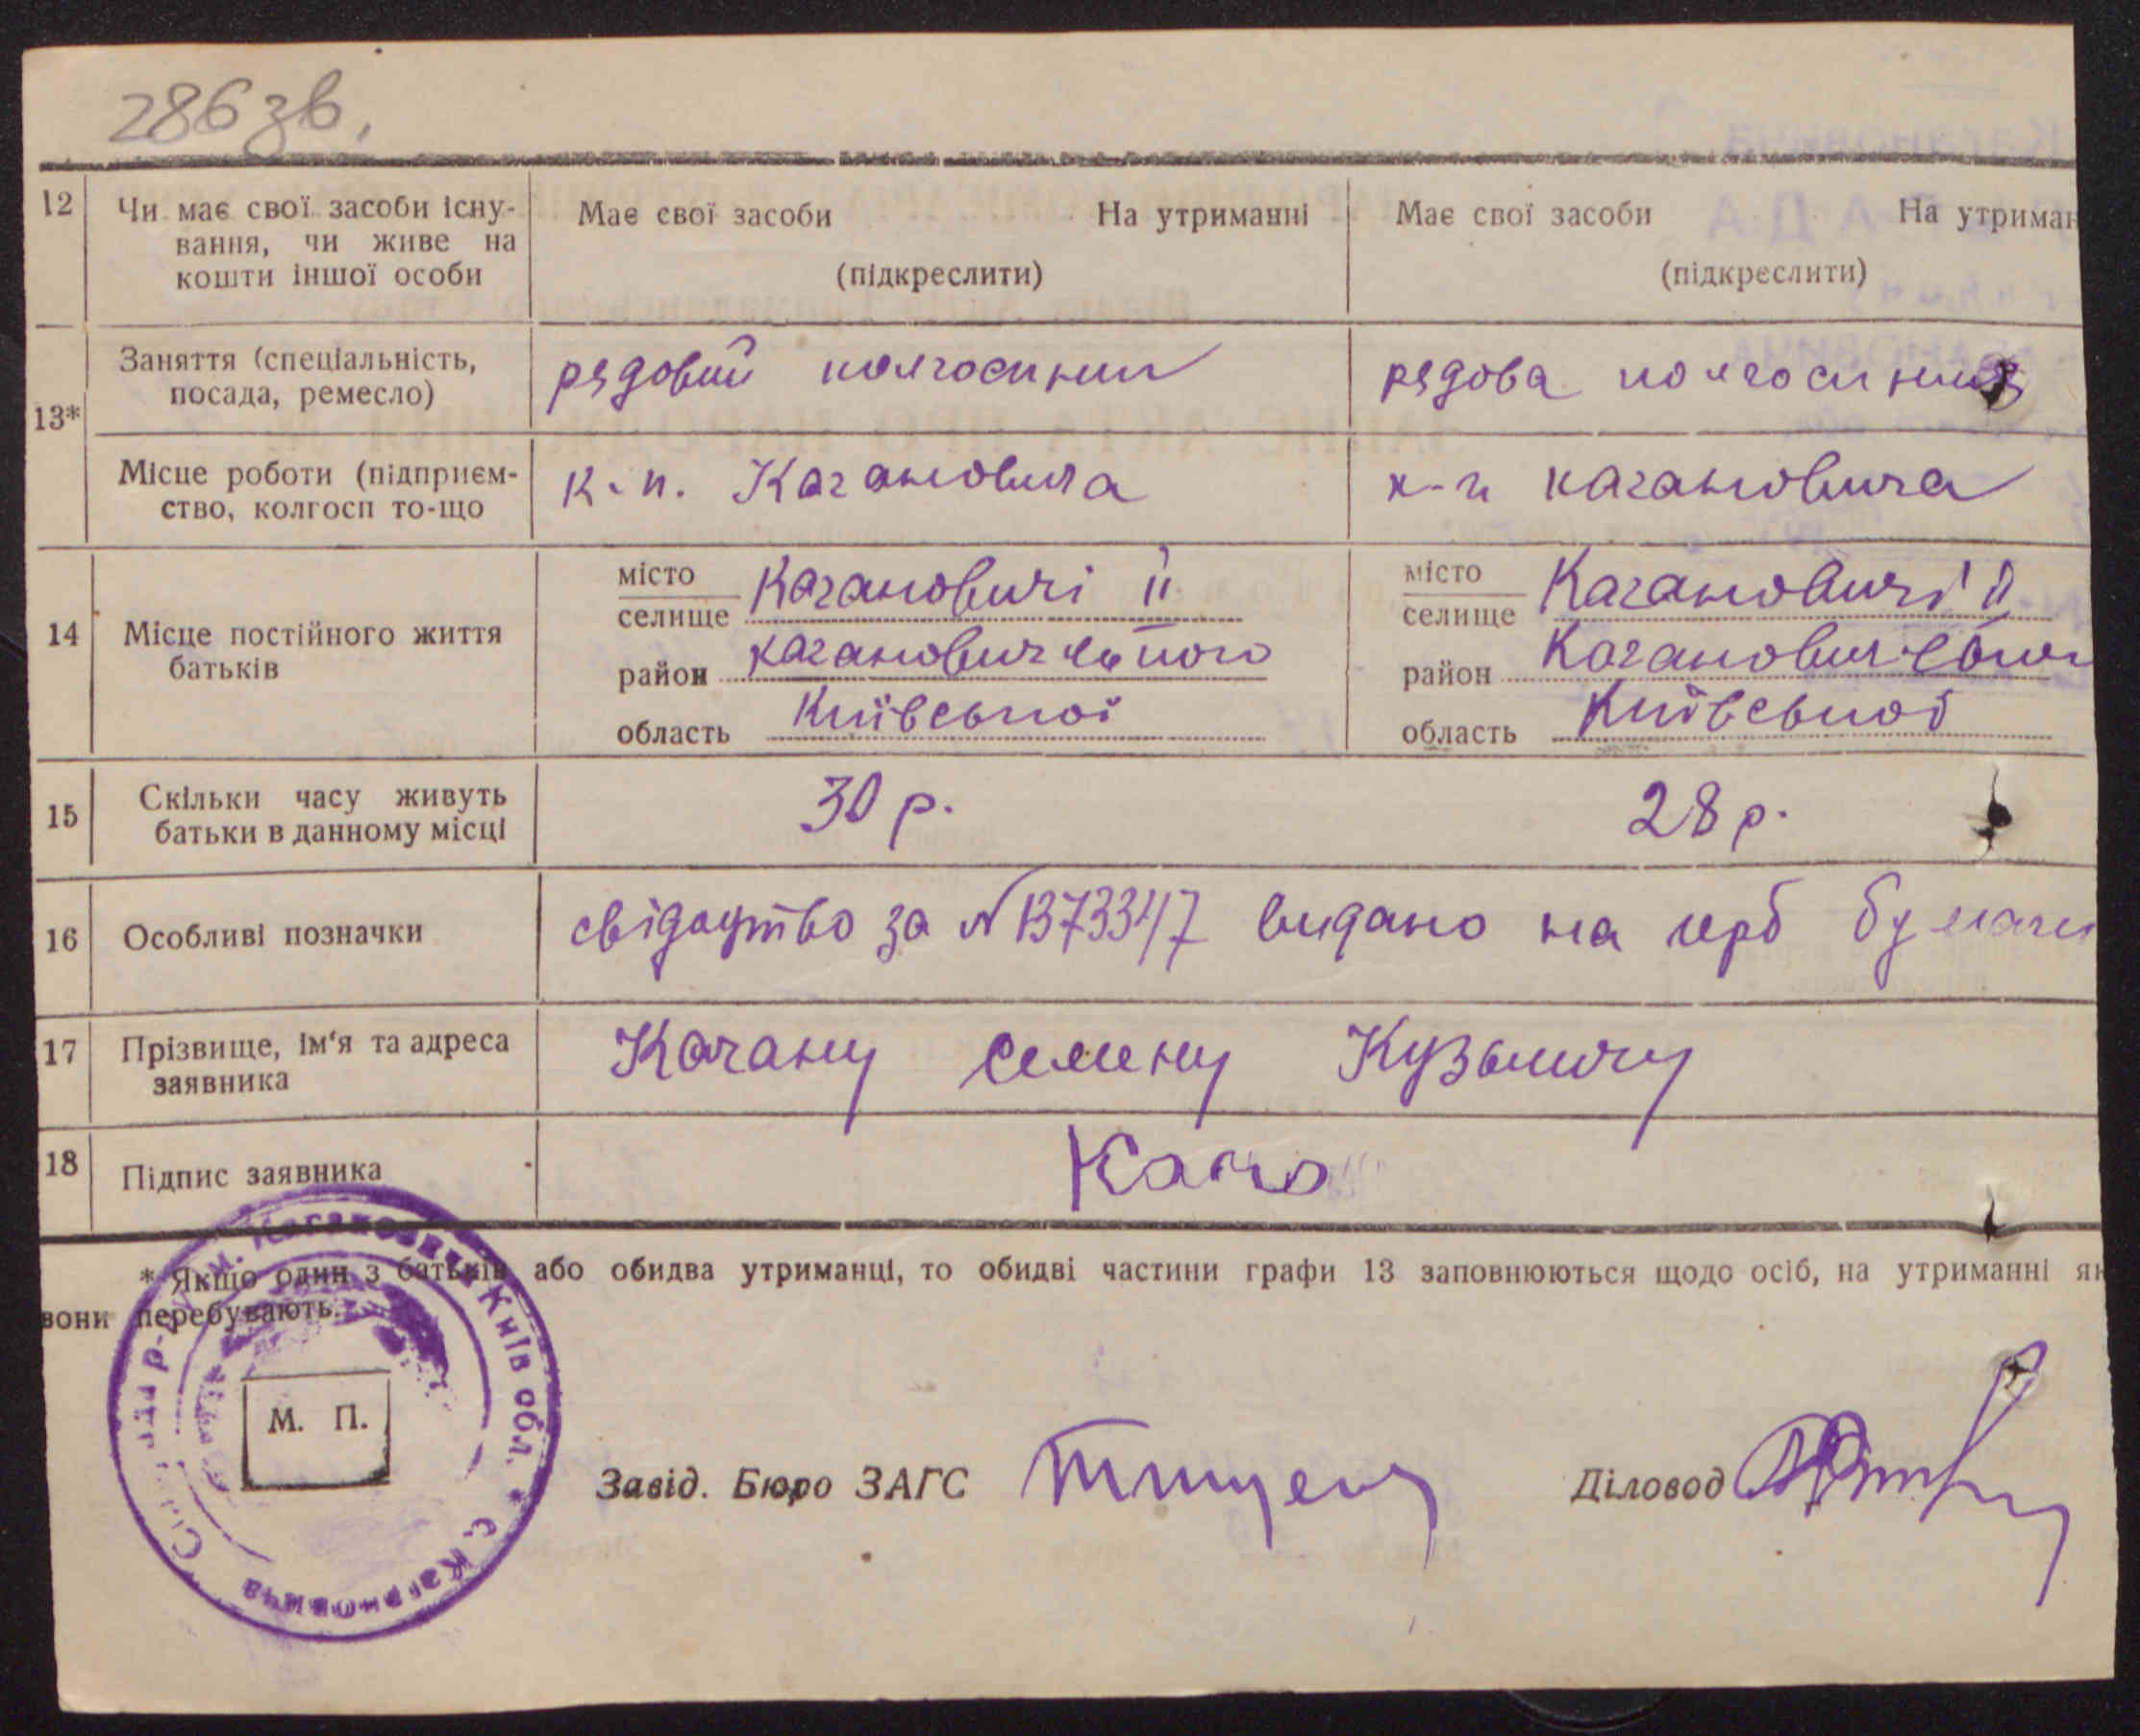 286 зв.
12 Чи має свої засоби існу- Має свої засоби На утриманні Має свої засоби На утриман
вання, чи живе на
кошти іншої особи (підкреслити) (підкреслити)
Заняття (спеціальність,
посада, ремесло) рядовий колгоспник рядова колгоспниця
13*
Місце роботи (підприєм- к-п. Кагановича к-п кагановича
ство, колгосп то-що
місто Кагановичі ІІ місто Кагановичі ІІ
селище селище
14 Місце постійного життя район кагановичського район Кагановичського
батьків
область Київської область Київської
15 Скільки часу живуть 30 р. 28 р.
батьки в данному місці
16 Особливі позначки свідоцтво за № 1373347 видано на герб бумаги
17 Прізвище, ім'я та адреса Качану Семену Кузьмичу
заявника
18 Підпис заявника Кача
* Якщо один з батьків або обидва утриманці, то обидві частини графи 13 заповнюються щодо осіб, на утриманні як
вони перебувають.
м. Кагановича Київ обл. * С. Кагановича
М. П.
Завід. Бюро ЗАГС Діловод